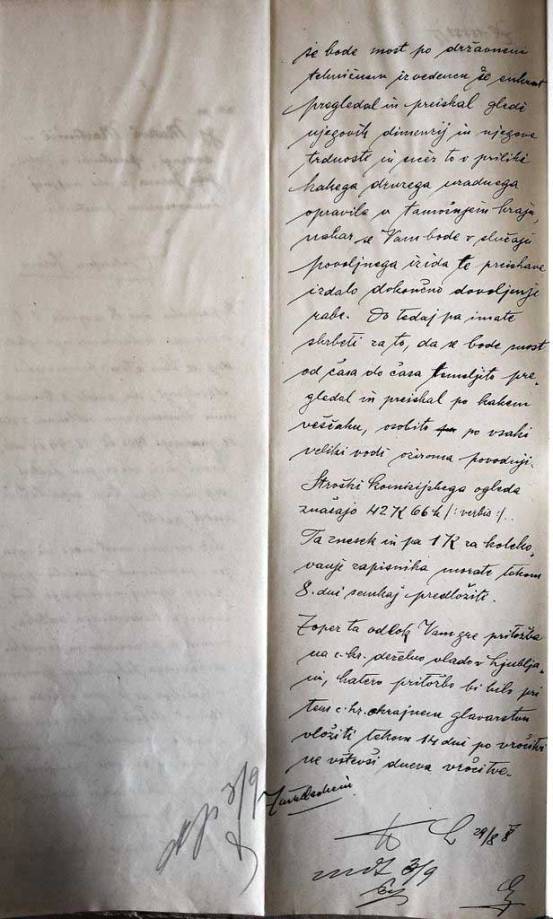 se bode most po državnem
tehničnem izvedencu še enkrat
pregledal in preiskal glede
njegovih dimenzij in njegove
trdnosti in sicer to v priliki
kakega druzega uradnega
opravila v tamošnjem kraju,
nakar se Vam bode v slučaju
povoljnega izida te preiskave
izdalo dokončno dovoljenje
rabe. Do tedaj pa imate
skrbeti za to, da se bode most
od časa do časa temeljito pre-
gledal in preiskal po kakem
veščaku, osobito po vsaki
veliki vodi oziroma povodnji.
Stroški komisijskega ogleda
znašajo 42 K 66 h /: verba :/.
Ta znesek in pa 1 K za koleko-
vanje zapisnika morate tekom
8. dni semkaj predložiti.
Zoper ta odlok Vam gre pritožba
na c. kr. deželno vlado v Ljublja-
ni, katero pritožbo bi bilo pri
tem c. kr. okrajnem glavarstvu
vložiti tekom 14 dni po vročitvi
ne vštevši dneva vročitve.
3/9
29/8
3/9